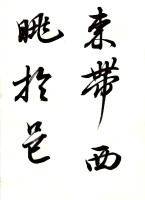 束帶西
眺於邑